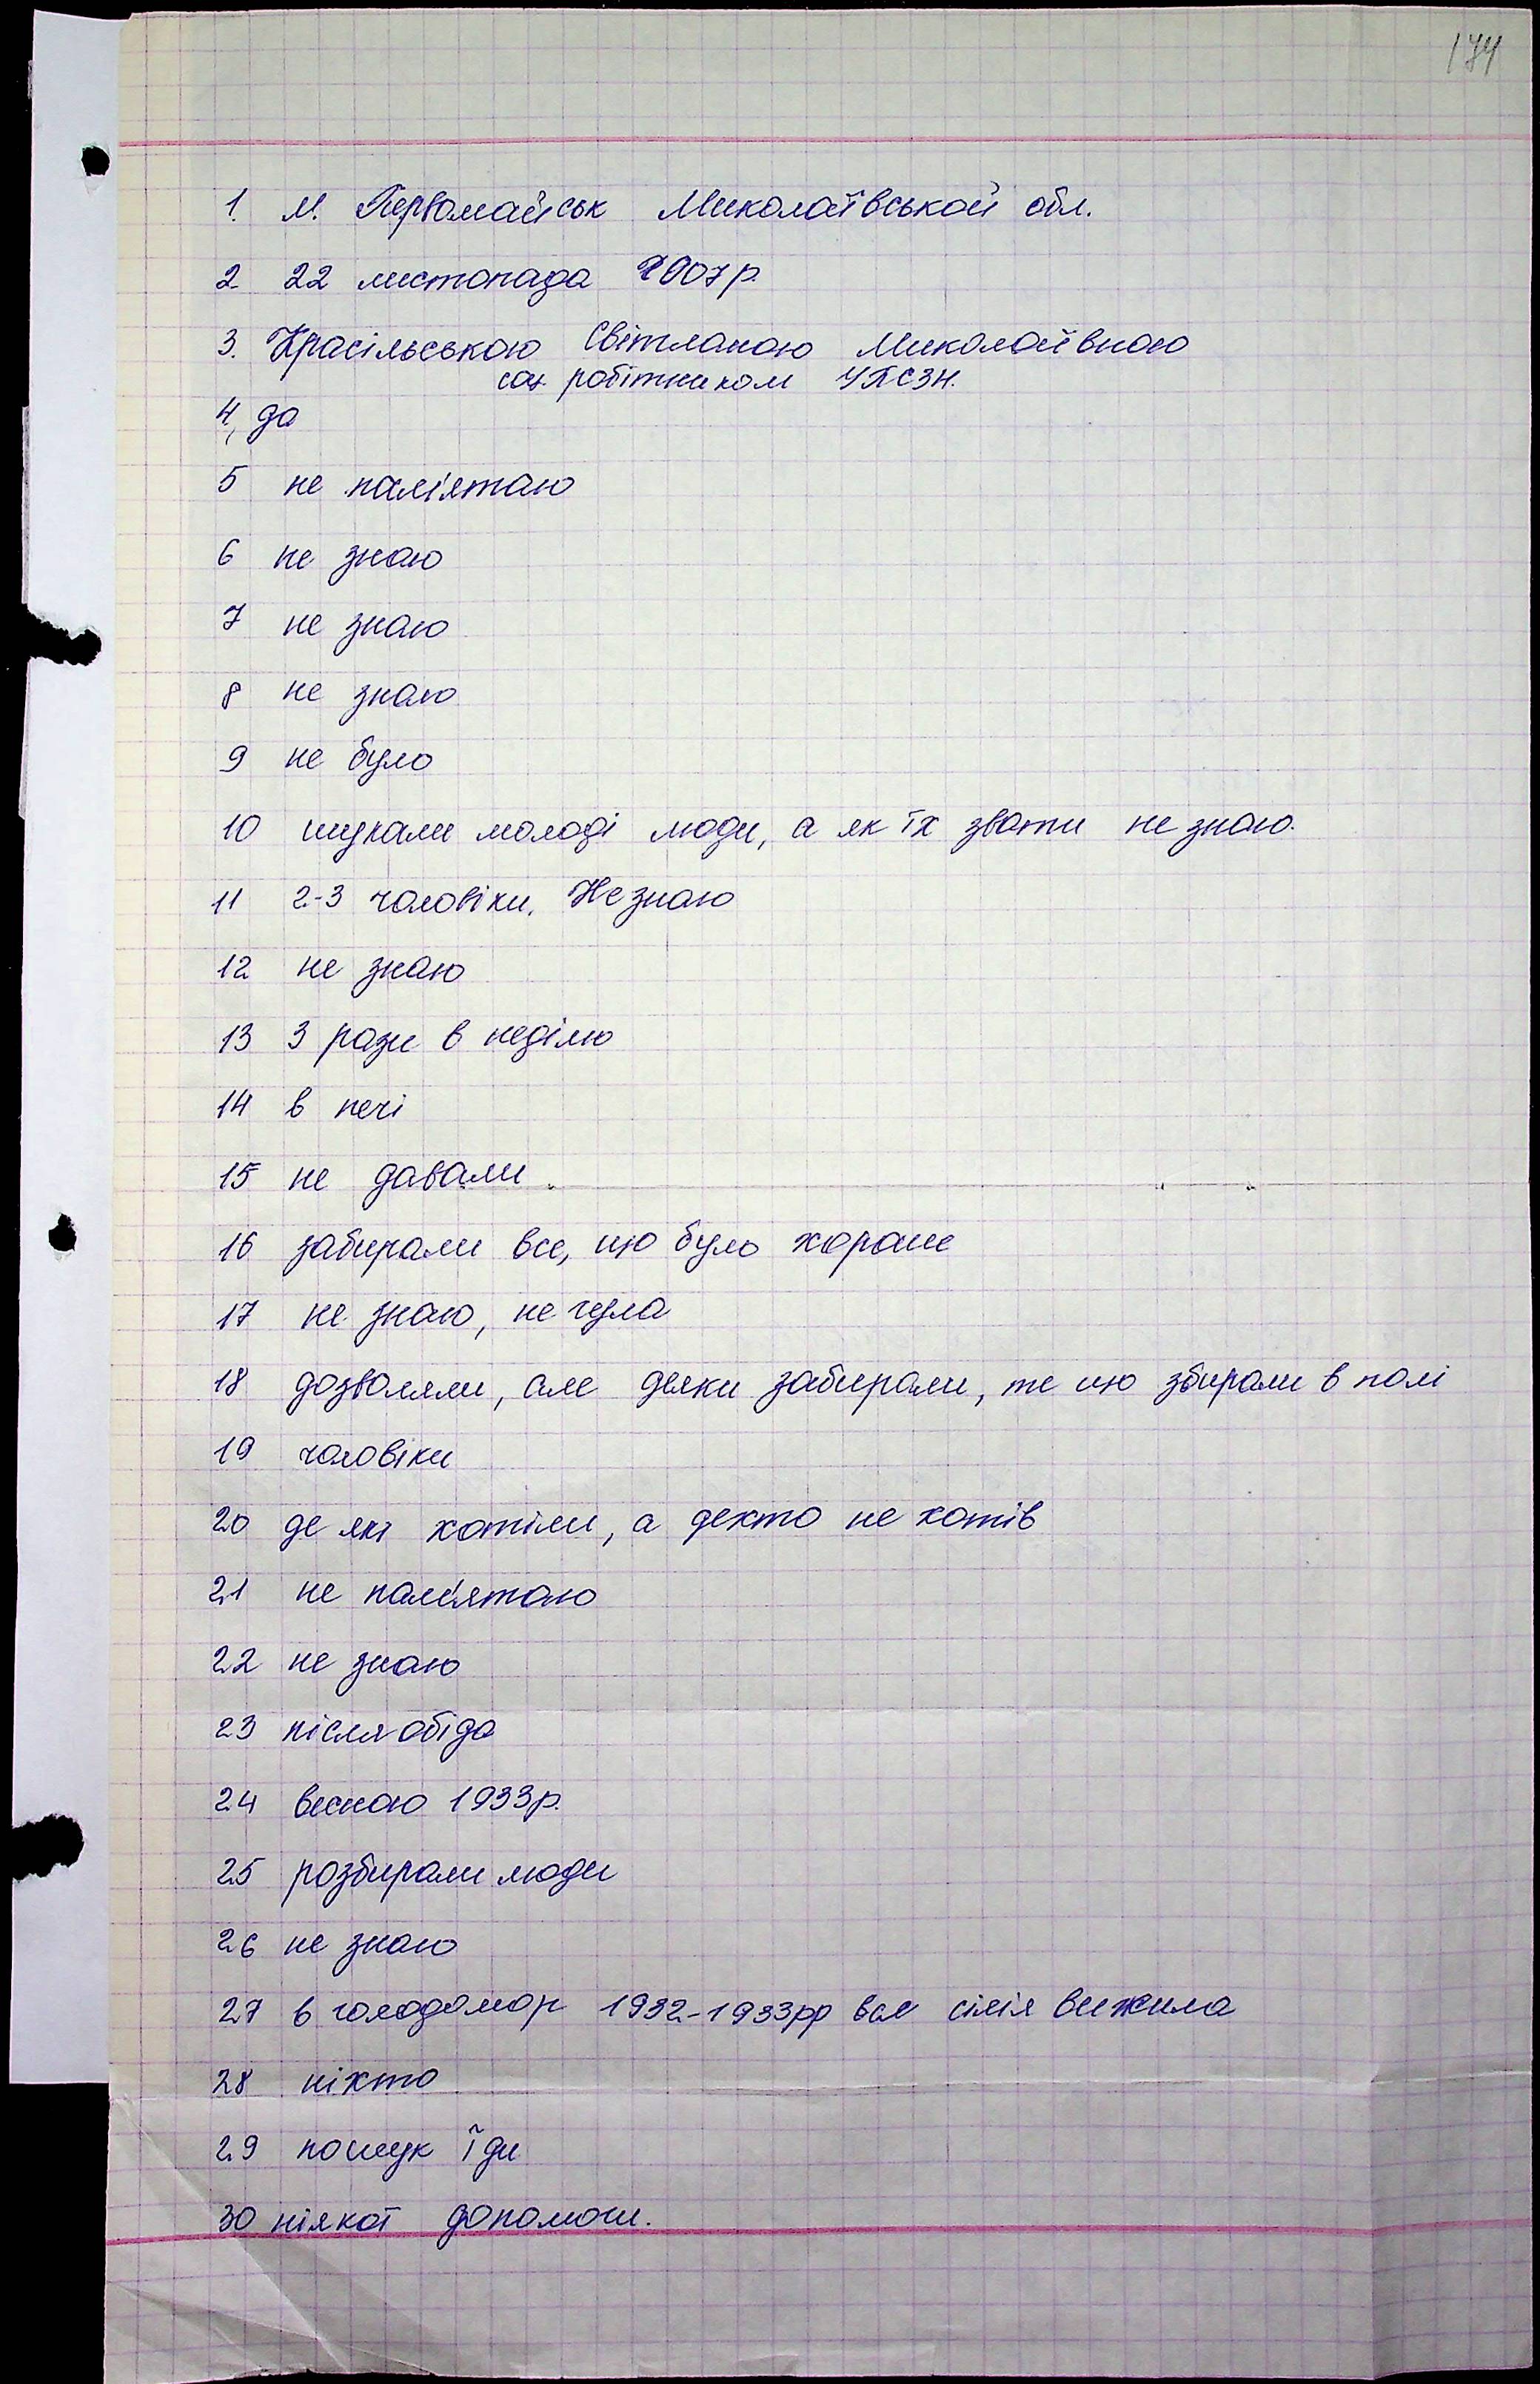 174
1. м. Первомайськ Миколаївської обл.
2 22 листопада 2007р.
3. Красільською Світланою Миколаївною
соц робітником УПСЗН.
4, да
5 не пам'ятаю
6 не знаю
7 не знаю
8 не знаю
9 не було
10 шукали молоді люди, а як їх звати не знаю.
11 2-3 чоловіки. Не знаю
12 не знаю
13 3 рази в неділю
14 в печі
15 не давали
16 забирали все, що було хороше
17 не знаю, не чула
18 дозволяли, але деяки забирали, те що збирали в полі
19 чоловіки
20 де які хотіли, а дехто не хотів
21 не пам'ятаю
22 не знаю
23 після обіда
24 весною 1933р.
25 розбирали люди
26 не знаю
27 в голодомор 1932-1933рр вся сім'я вижила
28 ніхто
29 пошук їди
30 ніякої допомоги.